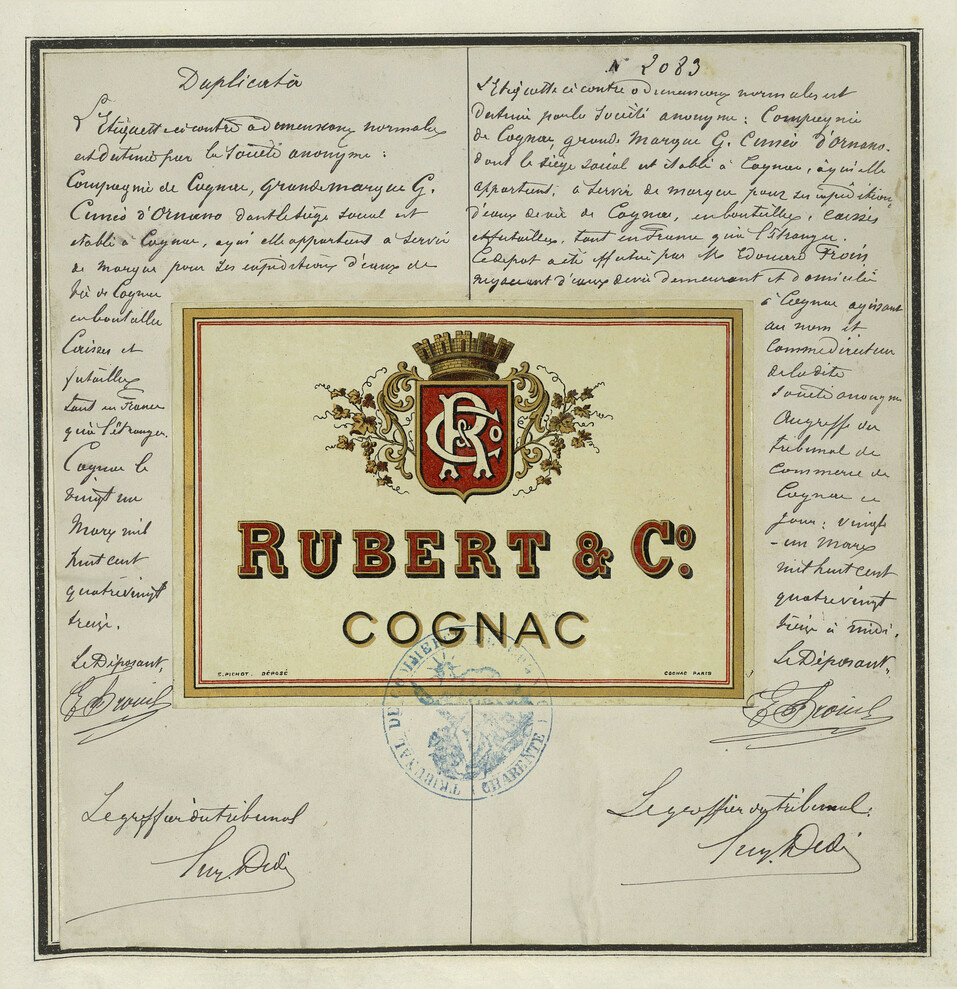 Duplicata
L'Etiquette ci contre a dimensions normales
est destiné par la Société anonyme :
Compagnie de Cognac, grande marque G.
Cunéo d'Ornano dont le siège social est
établi à Cognac, a qui elle appartient à servir
de marque pour ses expéditions d'eaux de
vie de Cognac
en bouteilles
Caisses et
futailles
tant en France
qu'à l'étranger.
Cognac le
vingt un
Mars mil
huit cent
quatre vingt
treize.
Le Déposant,
Le greffier du tribunal
N° 2083
L'Etiquette ci contre a dimensions normales est
destiné par la Société anonyme : Compagnie
de Cognac, grande Marque G. Cunéo d'Ornano.
dont le siège social est établi à Cognac, à qui elle
appartient, à servir de marque pour ses expéditions
d'eaux de vie de Cognac, en bouteilles, caisses
et futailles, tant en France qu'à l'étranger.
Ce depot a été effectué par Mr Edouard Froin
négociant d'eaux de vie demeurant et domicilié
à Cognac agissant
au nom et
comme directeur
de la dite
Société anonyme
Au greffe du
tribunal de
Commerce de
Cognac ce
jour : vingt
-un Mars
mil huit cent
quatre vingt
treize à midi.
Le Déposant
E Froin
Le greffier du tribunal.
R & Co
RUBERT & Co.
COGNAC
E. PICHOT . DÉPOSÉ
COGNAC PARIS
TRIBUNAL DE COMMERCE
CHARENTE